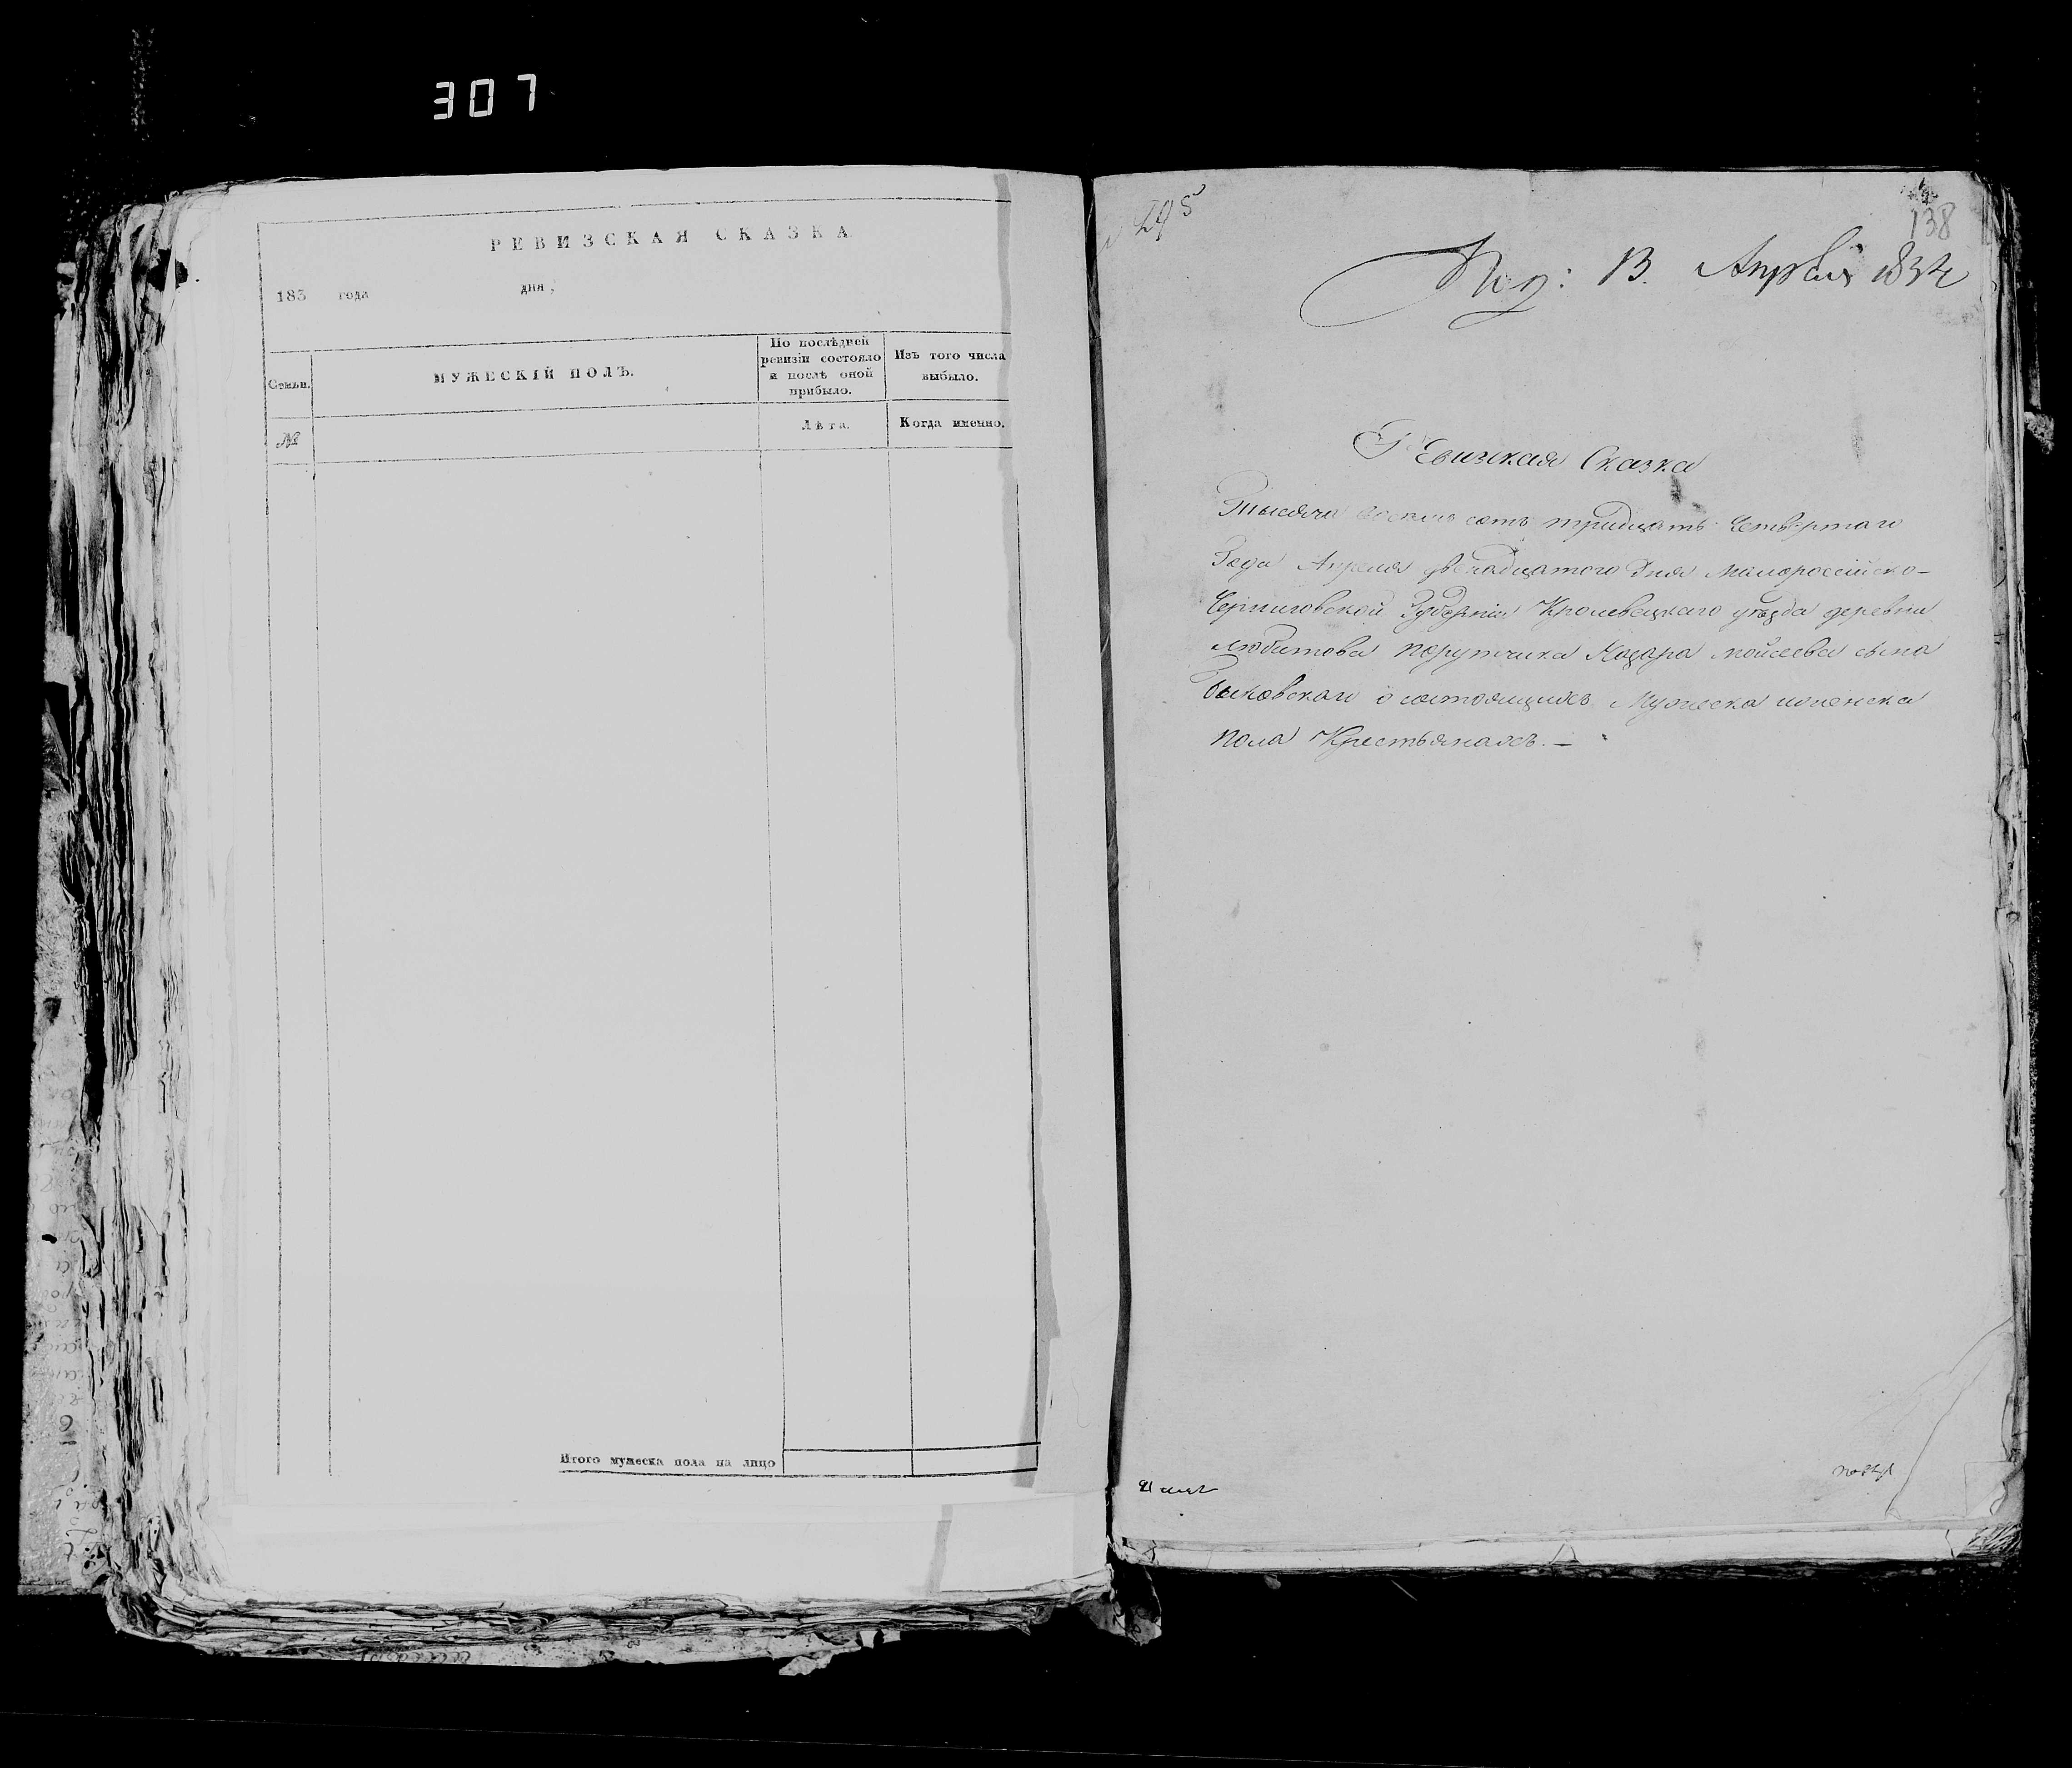 307
РЕВИЗСКАЯ СКАЗКА
183 года дня;
Семьи.
МУЖЕСКІЙ ПОЛЪ.
По послѣдней
ревизіи состояло
и послѣ оной
прибыло.
Изъ того числа
выбыло.
№
Лѣта.
Когда именно.
Итого мужеска пола на лицо
295
138
Под: 13. Апрѣля 1834
Ревизкая Сказка
Тысяча восемь сотъ тридцать Четвертаго
Года Апреля двенадцатого Дня Малороссійско-
Черниговской Губерніи Кролевецкаго уѣзда деревни
Любитова порутчика Моисеева сына
Быковскаго о состоящихъ Мужеска и женска
пола Крестьянахъ. —